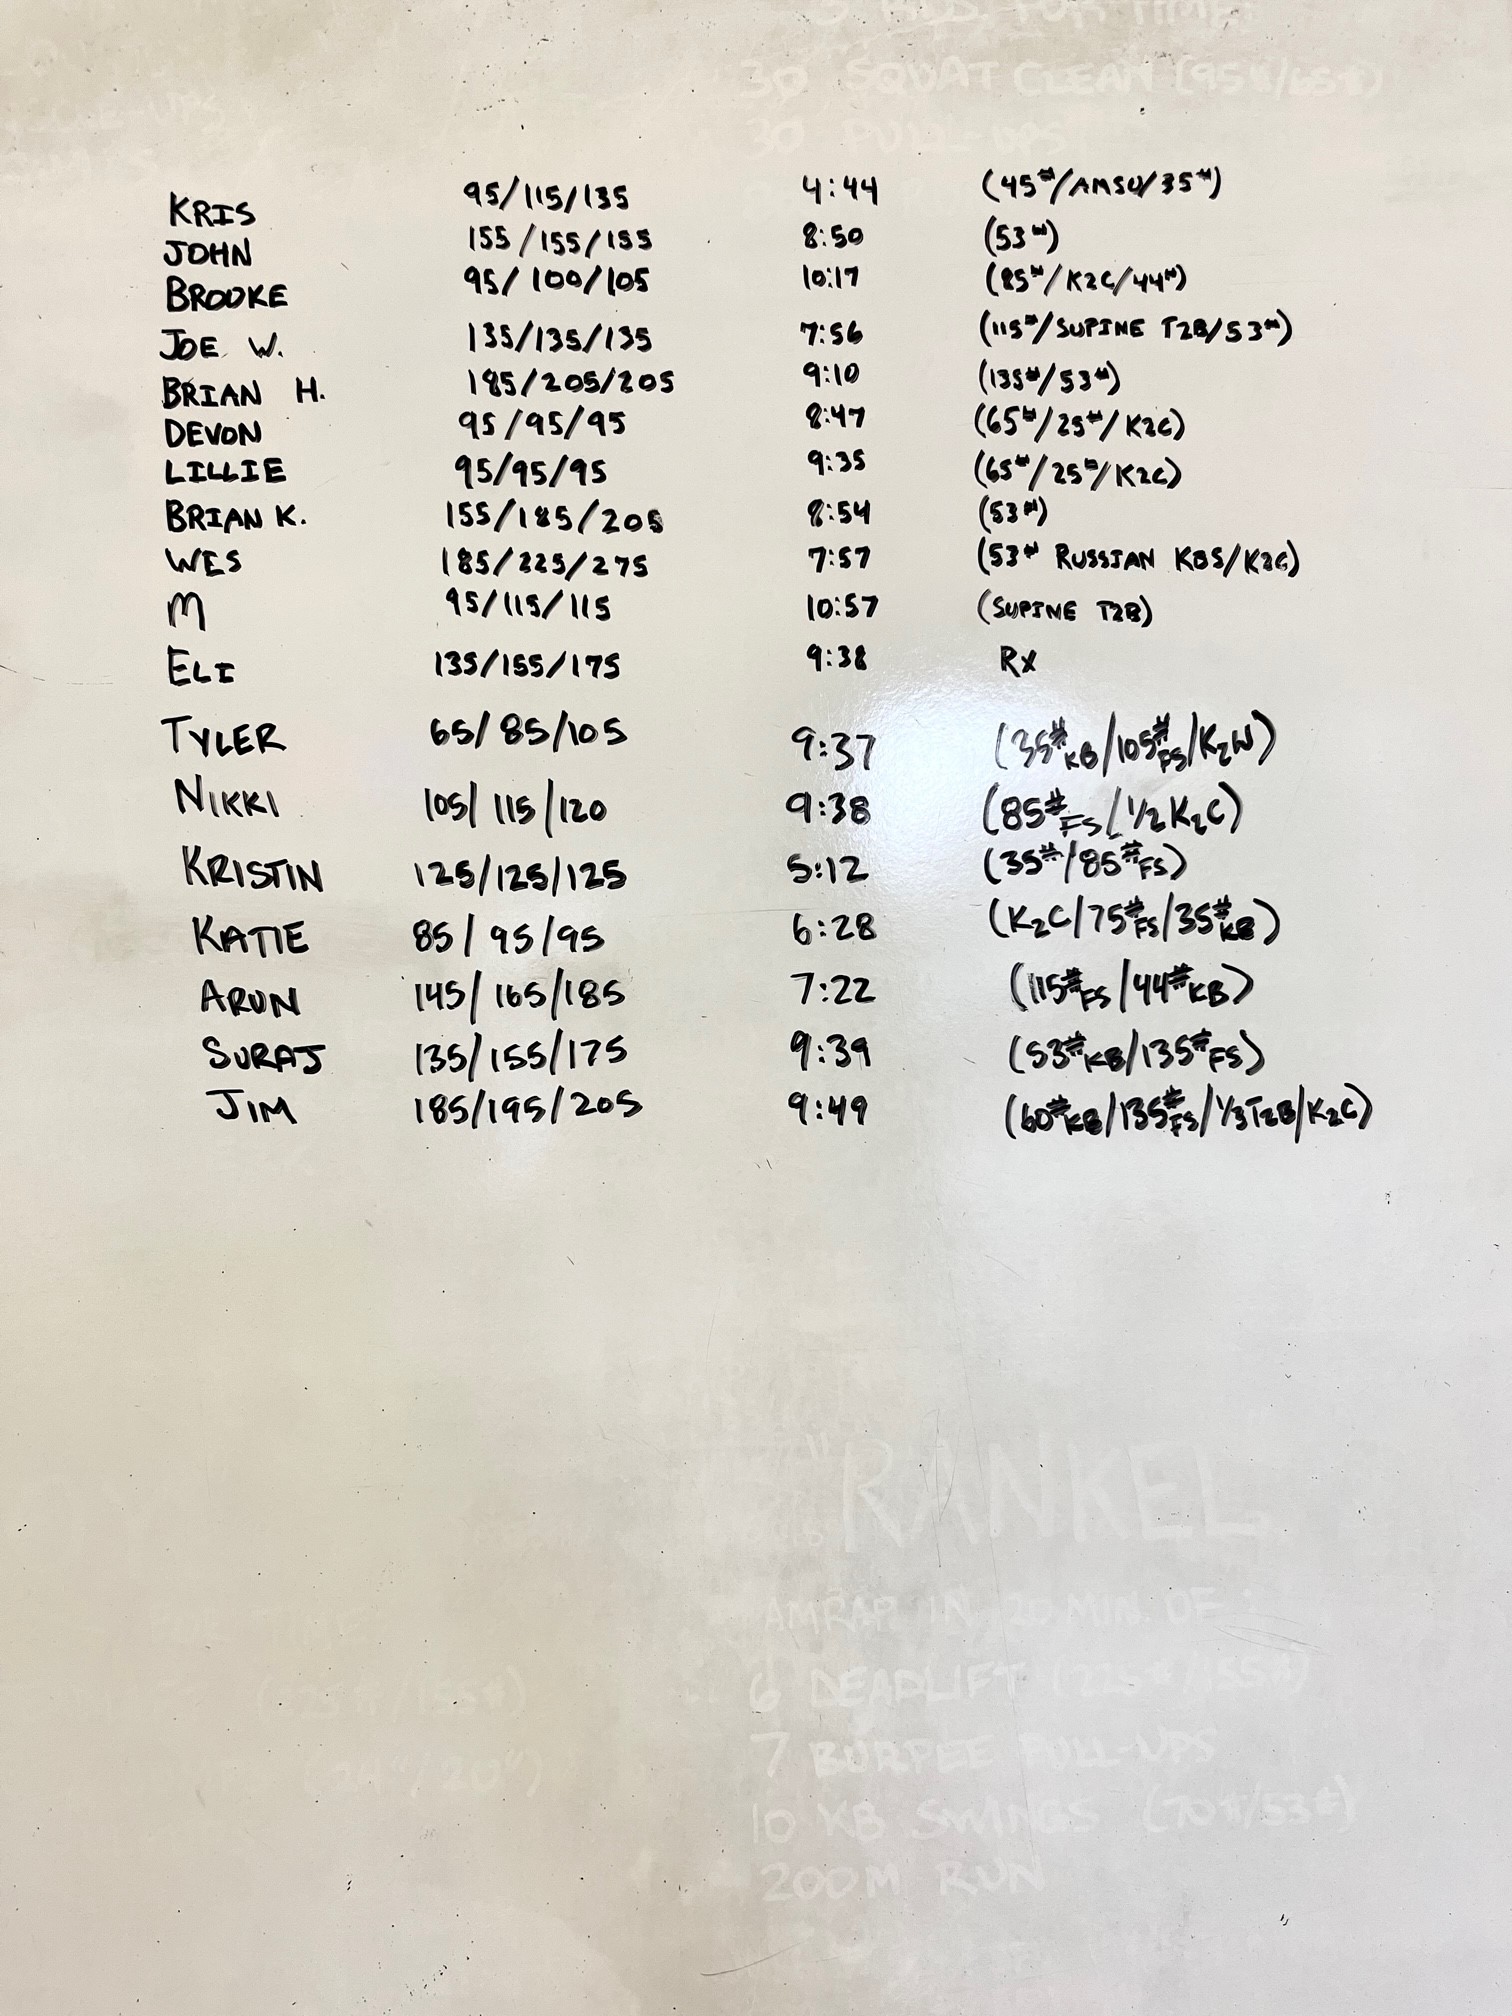 3 RDS. FOR TIME:
30 SQUAT CLEAN (95#/65#)
30 PULL-UPS
KRIS 95/115/135 4:44 (45#/AMSU/35#)
JOHN 155/155/155 8:50 (53#)
BROOKE 95/100/105 10:17 (85#/K2C/44#)
JOE W. 135/135/135 7:56 (115#/SUPINE T2B/53#)
BRIAN H. 185/205/205 9:10 (135#/53#)
DEVON 95/95/95 8:47 (65#/25#/K2C)
LILLIE 95/95/95 9:35 (65#/25#/K2C)
BRIAN K. 155/185/205 8:54 (53#)
WES 185/225/275 7:57 (53# RUSSIAN KBS/K2C)
M 95/115/115 10:57 (SUPINE T2B)
ELI 135/155/175 9:38 Rx
TYLER 65/85/105 9:37 (35# KB/105# FS/K2W)
NIKKI 105/115/120 9:38 (85# FS/1/2 K2C)
KRISTIN 125/125/125 5:12 (35#/85# FS)
KATIE 85/95/95 6:28 (K2C/75# FS/35# KB)
ARUN 145/165/185 7:22 (115# FS/44# KB)
SURAJ 135/155/175 9:39 (53# KB/135# FS)
JIM 185/195/205 9:49 (60# KB/135# FS/1/3 T2B/K2C)
"RANKEL"
AMRAP IN 20 MIN. OF:
6 DEADLIFT (225#/155#)
(225#/155#)
7 BURPEE PULL-UPS
(24"/20")
10 KB SWINGS (70#/53#)
200M RUN